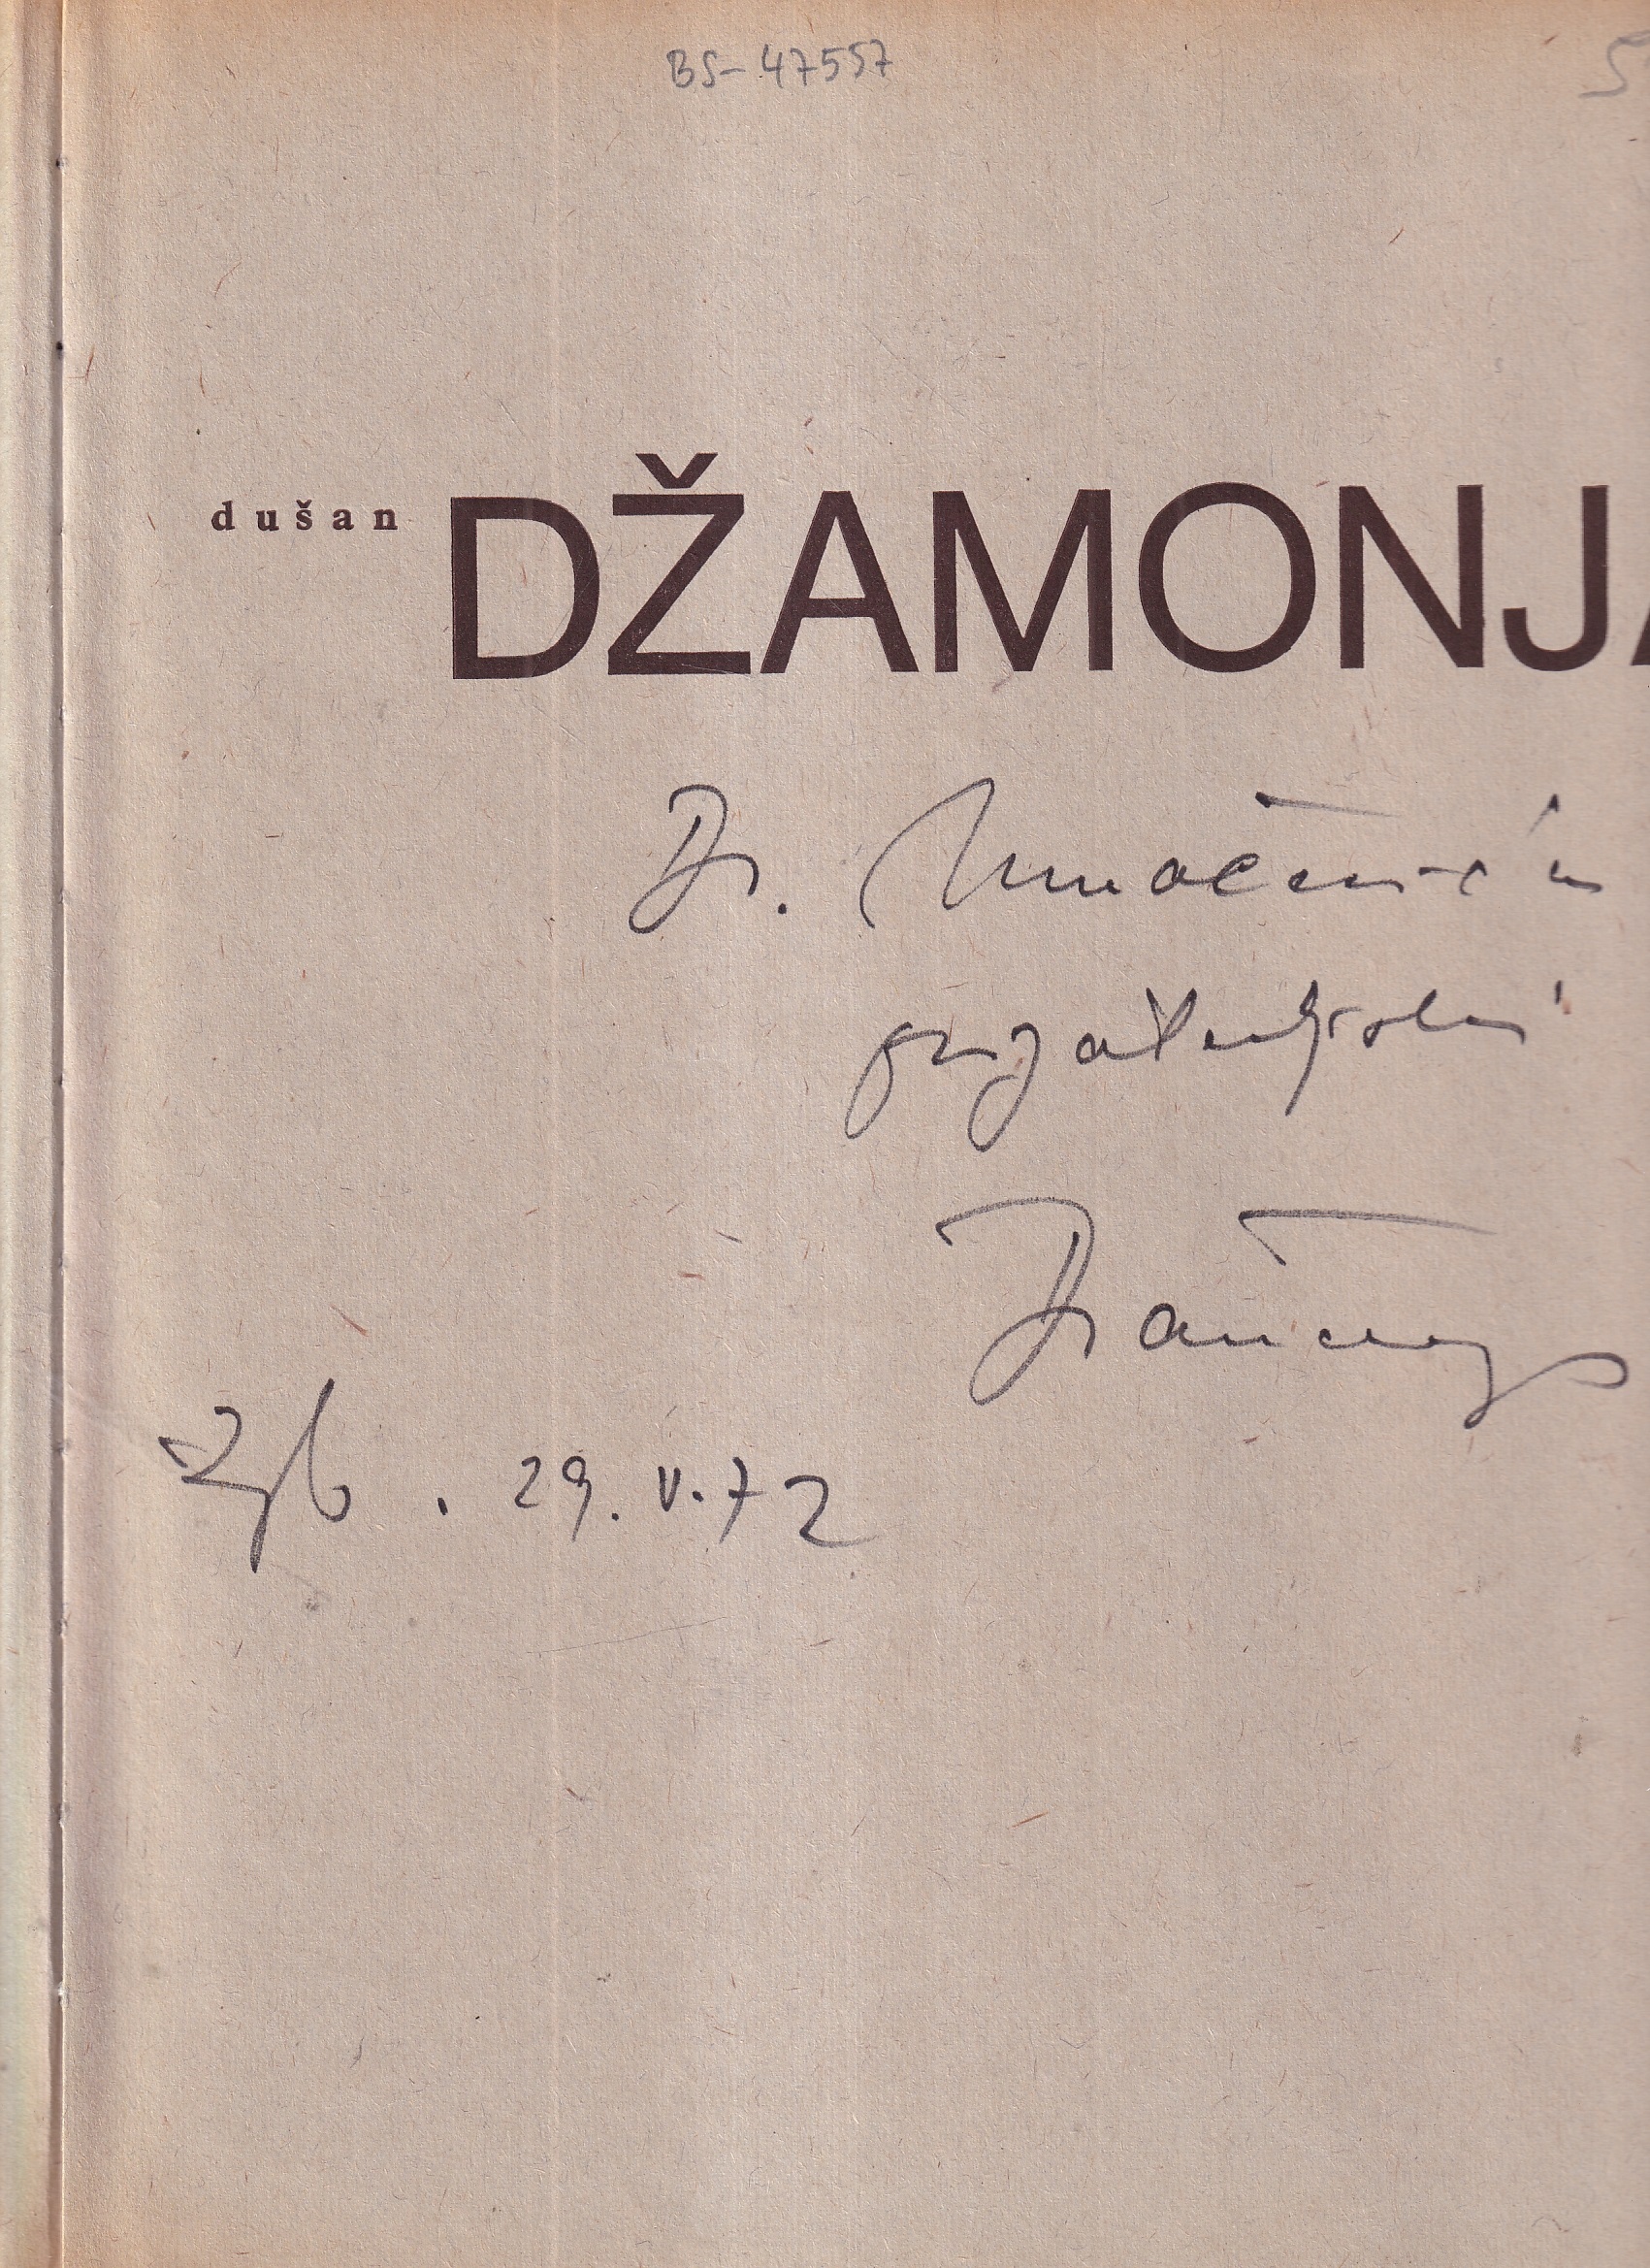 BS-47557
5
dušan DŽAMONJA
Dr.
prijateljski
Zgb. 29. V. 72